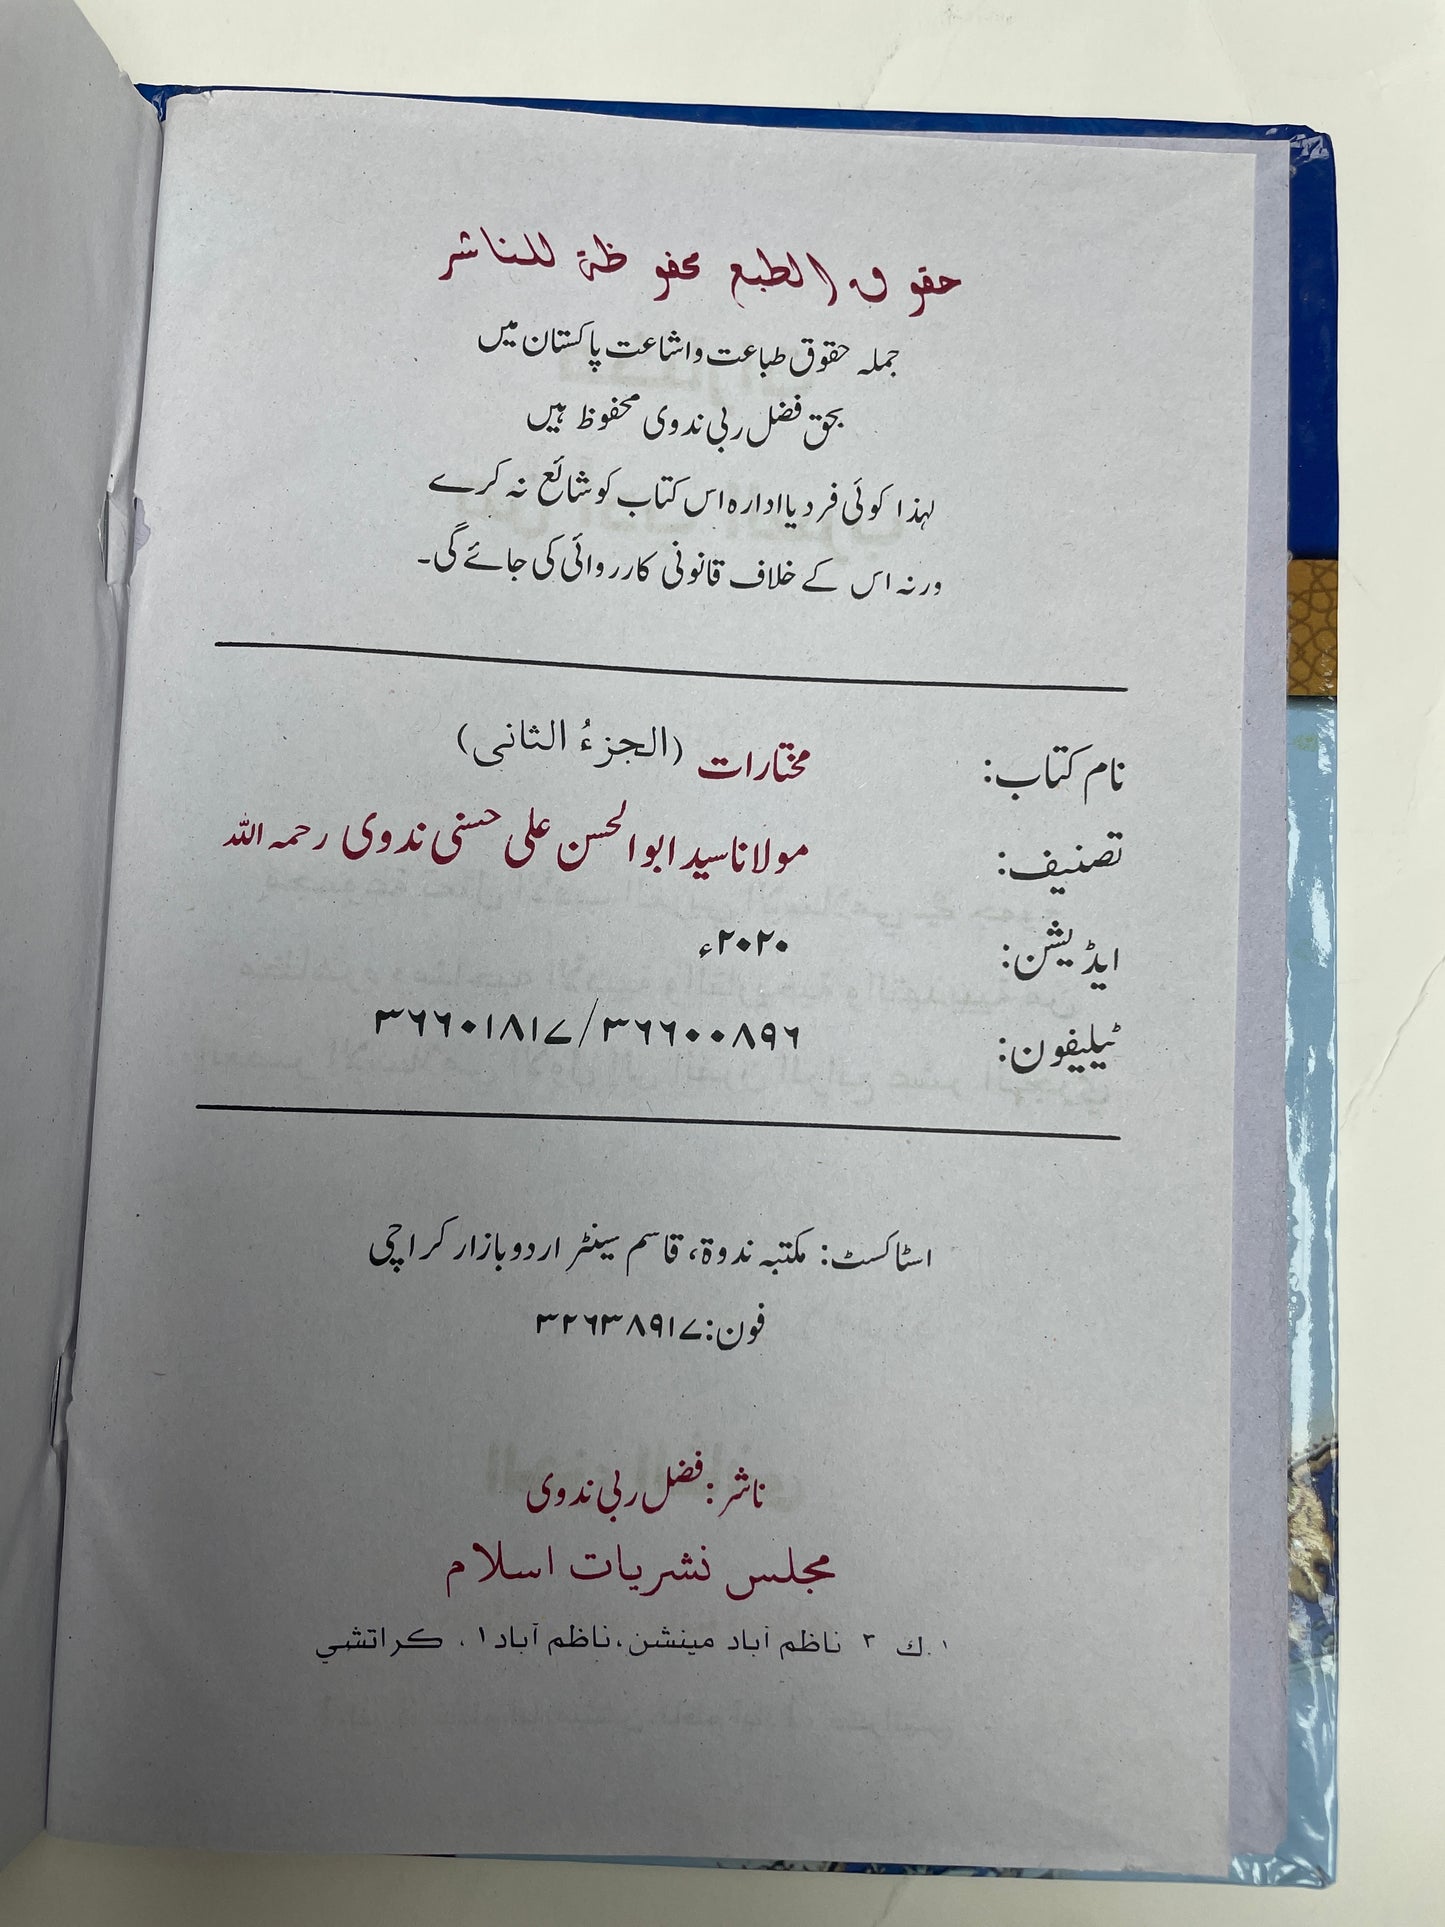 حقوق الطبع محفوظة للناشر
جملہ حقوق طباعت و اشاعت پاکستان میں
بحق فضل ربی ندوی محفوظ ہیں
لہذا کوئی فرد یا ادارہ اس کتاب کو شائع نہ کرے
ورنہ اس کے خلاف قانونی کارروائی کی جائے گی۔
نام کتاب: مختارات (الجزءُ الثانی)
تصنیف: مولانا سید ابوالحسن علی حسنی ندوی رحمہ اللہ
ایڈیشن: ۲۰۲۰ء
ٹیلیفون: ۳۶۶۰۱۸۱۷/۳۶۶۰۰۸۹۶
اسٹاکسٹ: مکتبہ ندوۃ، قاسم سینٹر اردو بازار کراچی
فون: ۳۲۶۳۸۹۱۷
ناشر: فضل ربی ندوی
مجلس نشریات اسلام
۱.ك ۳ ناظم آباد مینشن، ناظم آباد ۱، كراتشي